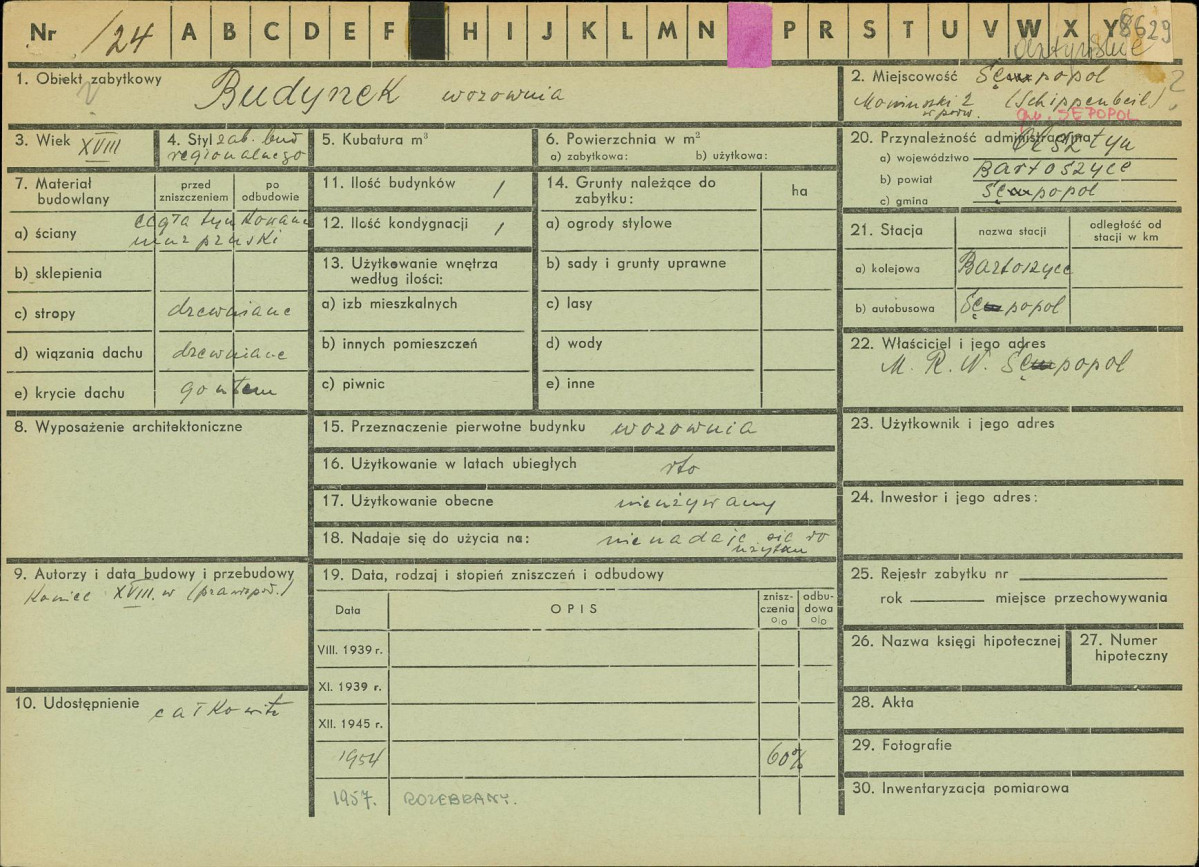 Nr /24 A B C D E F H I J K L M N P R S T U V W X Y 8629
1. Obiekt zabytkowy Budynek wozownia
?
2. Miejscowość Sępopol
(Schippenbeil) ?
gm. SĘPOPOL
3. Wiek XVIII
4. Styl zab. bud
regionalnego
5. Kubatura m³
6. Powierzchnia w m²
a) zabytkowa: b) użytkowa:
20. Przynależność administracyjna
a) województwo Olsztyn
b) powiat Bartoszyce
c) gmina Sępopol
7. Materiał budowlany
przed zniszczeniem
po odbudowie
a) ściany cegła tynkowana
mur pruski
b) sklepienia
c) stropy drewniane
d) wiązania dachu drewniane
e) krycie dachu gontem
11. Ilość budynków 1
12. Ilość kondygnacji 1
13. Użytkowanie wnętrza
według ilości:
a) izb mieszkalnych
b) innych pomieszczeń
c) piwnic
14. Grunty należące do
zabytku:
ha
a) ogrody stylowe
b) sady i grunty uprawne
c) lasy
d) wody
e) inne
21. Stacja
nazwa stacji
odległość od
stacji w km
a) kolejowa Bartoszyce
b) autobusowa Sępopol
22. Właściciel i jego adres
M. R. N. Sępopol
8. Wyposażenie architektoniczne
15. Przeznaczenie pierwotne budynku wozownia
16. Użytkowanie w latach ubiegłych
17. Użytkowanie obecne nieużywany
18. Nadaje się do użycia na: nie nadaje się do
użytku
23. Użytkownik i jego adres
24. Inwestor i jego adres:
9. Autorzy i data budowy i przebudowy
Koniec XVIII. w (prawopod.)
10. Udostępnienie całkowite
19. Data, rodzaj i stopień zniszczeń i odbudowy
Data OPIS znisz-
czenia
o|o
odbu-
dowa
o|o
VIII. 1939 r.
XI. 1939 r.
XII. 1945 r.
1954 60%
1957. ROZEBRANY.
25. Rejestr zabytku nr
rok miejsce przechowywania
26. Nazwa księgi hipotecznej
27. Numer
hipoteczny
28. Akta
29. Fotografie
30. Inwentaryzacja pomiarowa